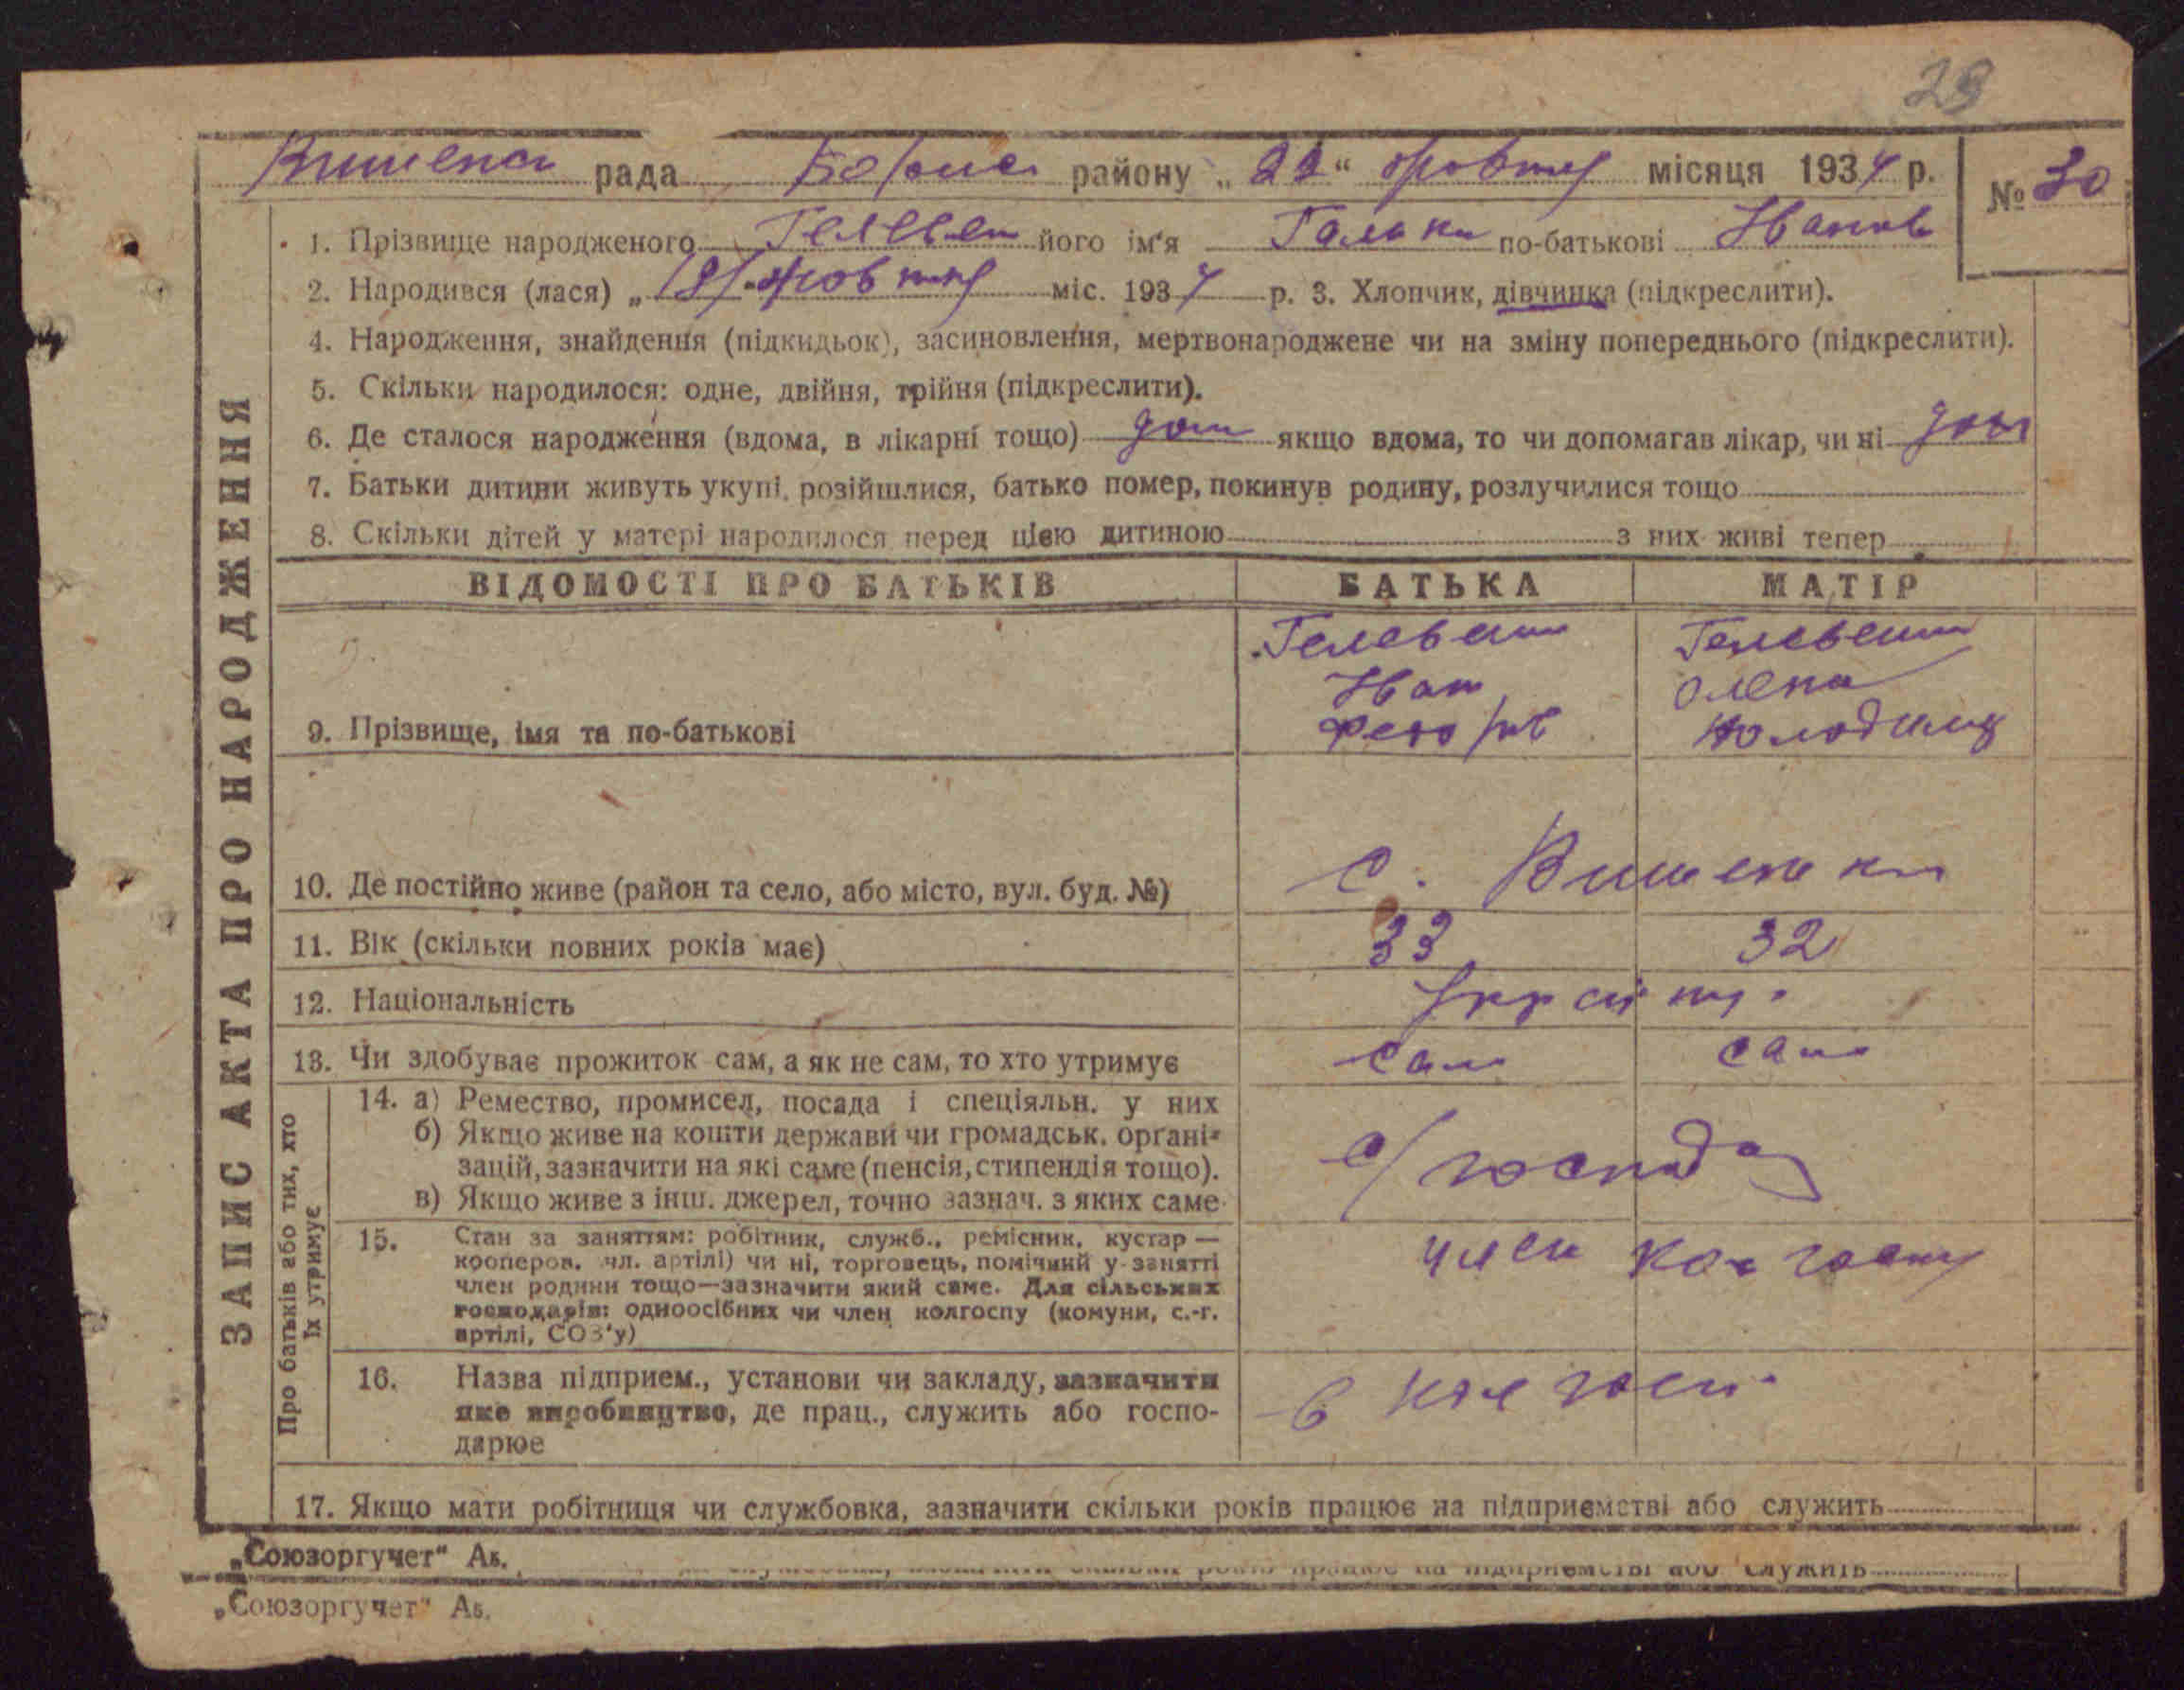 29
Вишенск рада Борис району „22“ жовтня місяця 1934 р.
№ 30
1. Прізвище народженого Гелевей його ім'я Галина по-батькові Іванов
2. Народився (лася) „18“ жовтня міс. 1934 р. 3. Хлопчик, дівчинка (підкреслити).
4. Народження, знайдення (підкидьок), засиновлення, мертвонароджене чи на зміну попереднього (підкреслити).
5. Скільки народилося: одне, двійня, трійня (підкреслити).
6. Де сталося народження (вдома, в лікарні тощо) дом якщо вдома, то чи допомагав лікар, чи ні дом
7. Батьки дитини живуть укупі, розійшлися, батько помер, покинув родину, розлучилися тощо
8. Скільки дітей у матері народилося перед цією дитиною з них живі тепер
ЗАПИС АКТА ПРО НАРОДЖЕННЯ
ВІДОМОСТІ ПРО БАТЬКІВ БАТЬКА МАТІР
Іван Олена
9. Прізвище, імя та по-батькові Володим
10. Де постійно живе (район та село, або місто, вул. буд. №) с. Вишеньки
11. Вік (скільки повних років має) 33 32
12. Національність
13. Чи здобуває прожиток сам, а як не сам, то хто утримує сам сам
Про батьків або тих, хто їх утримує
14. а) Ремество, промисел, посада і спеціяльн. у них
б) Якщо живе на кошти держави чи громадськ. органі-
зацій, зазначити на які саме (пенсія, стипендія тощо). с/господа
в) Якщо живе з інш. джерел, точно зазнач. з яких саме
15. Стан за заняттям: робітник, служб., ремісник, кустар —
кооперов. чл. артілі) чи ні, торговець, помічний у занятті член колгоспу
член родини тощо—зазначити який саме. Для сільських
господарів: одноосібних чи член колгоспу (комуни, с.-г.
артілі, СОЗ'у)
16. Назва підприєм., установи чи закладу, зазначити
яке виробництво, де прац., служить або госпо- в колгосп
дарює
17. Якщо мати робітниця чи службовка, зазначити скільки років працює на підприємстві або служить
„Союзоргучет“ Ав.
працює на підприємстві або служить
„Союзоргучет“ Ав.